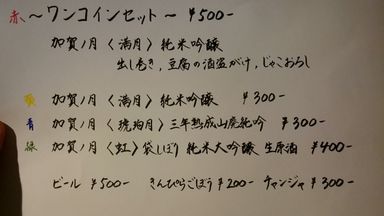 赤 〜ワンコインセット〜 ¥500-
加賀ノ月〈満月〉純米吟醸
出し巻き, 豆腐の酒盗がけ, じゃこおろし
黄 加賀ノ月〈満月〉純米吟醸 ¥300-
青 加賀ノ月〈琥珀月〉三年熟成山廃純吟 ¥300-
緑 加賀ノ月〈虹〉袋しぼり 純米大吟醸 生原酒 ¥400-
ビール ¥500- きんぴらごぼう ¥200- チャンジャ ¥300-